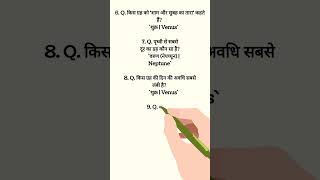 6. Q. किस ग्रह को 'शाम और सुबह का तारा' कहते
हैं?
`शुक्र | Venus`
7. Q. पृथ्वी से सबसे
दूर का ग्रह कौन रहा है?
`वरुण (नेपच्यून) |
Neptune`
8. Q. किस ग्रह की दिन की अवधि सबसे
लंबी है?
`शुक्र | Venus`
9. Q.